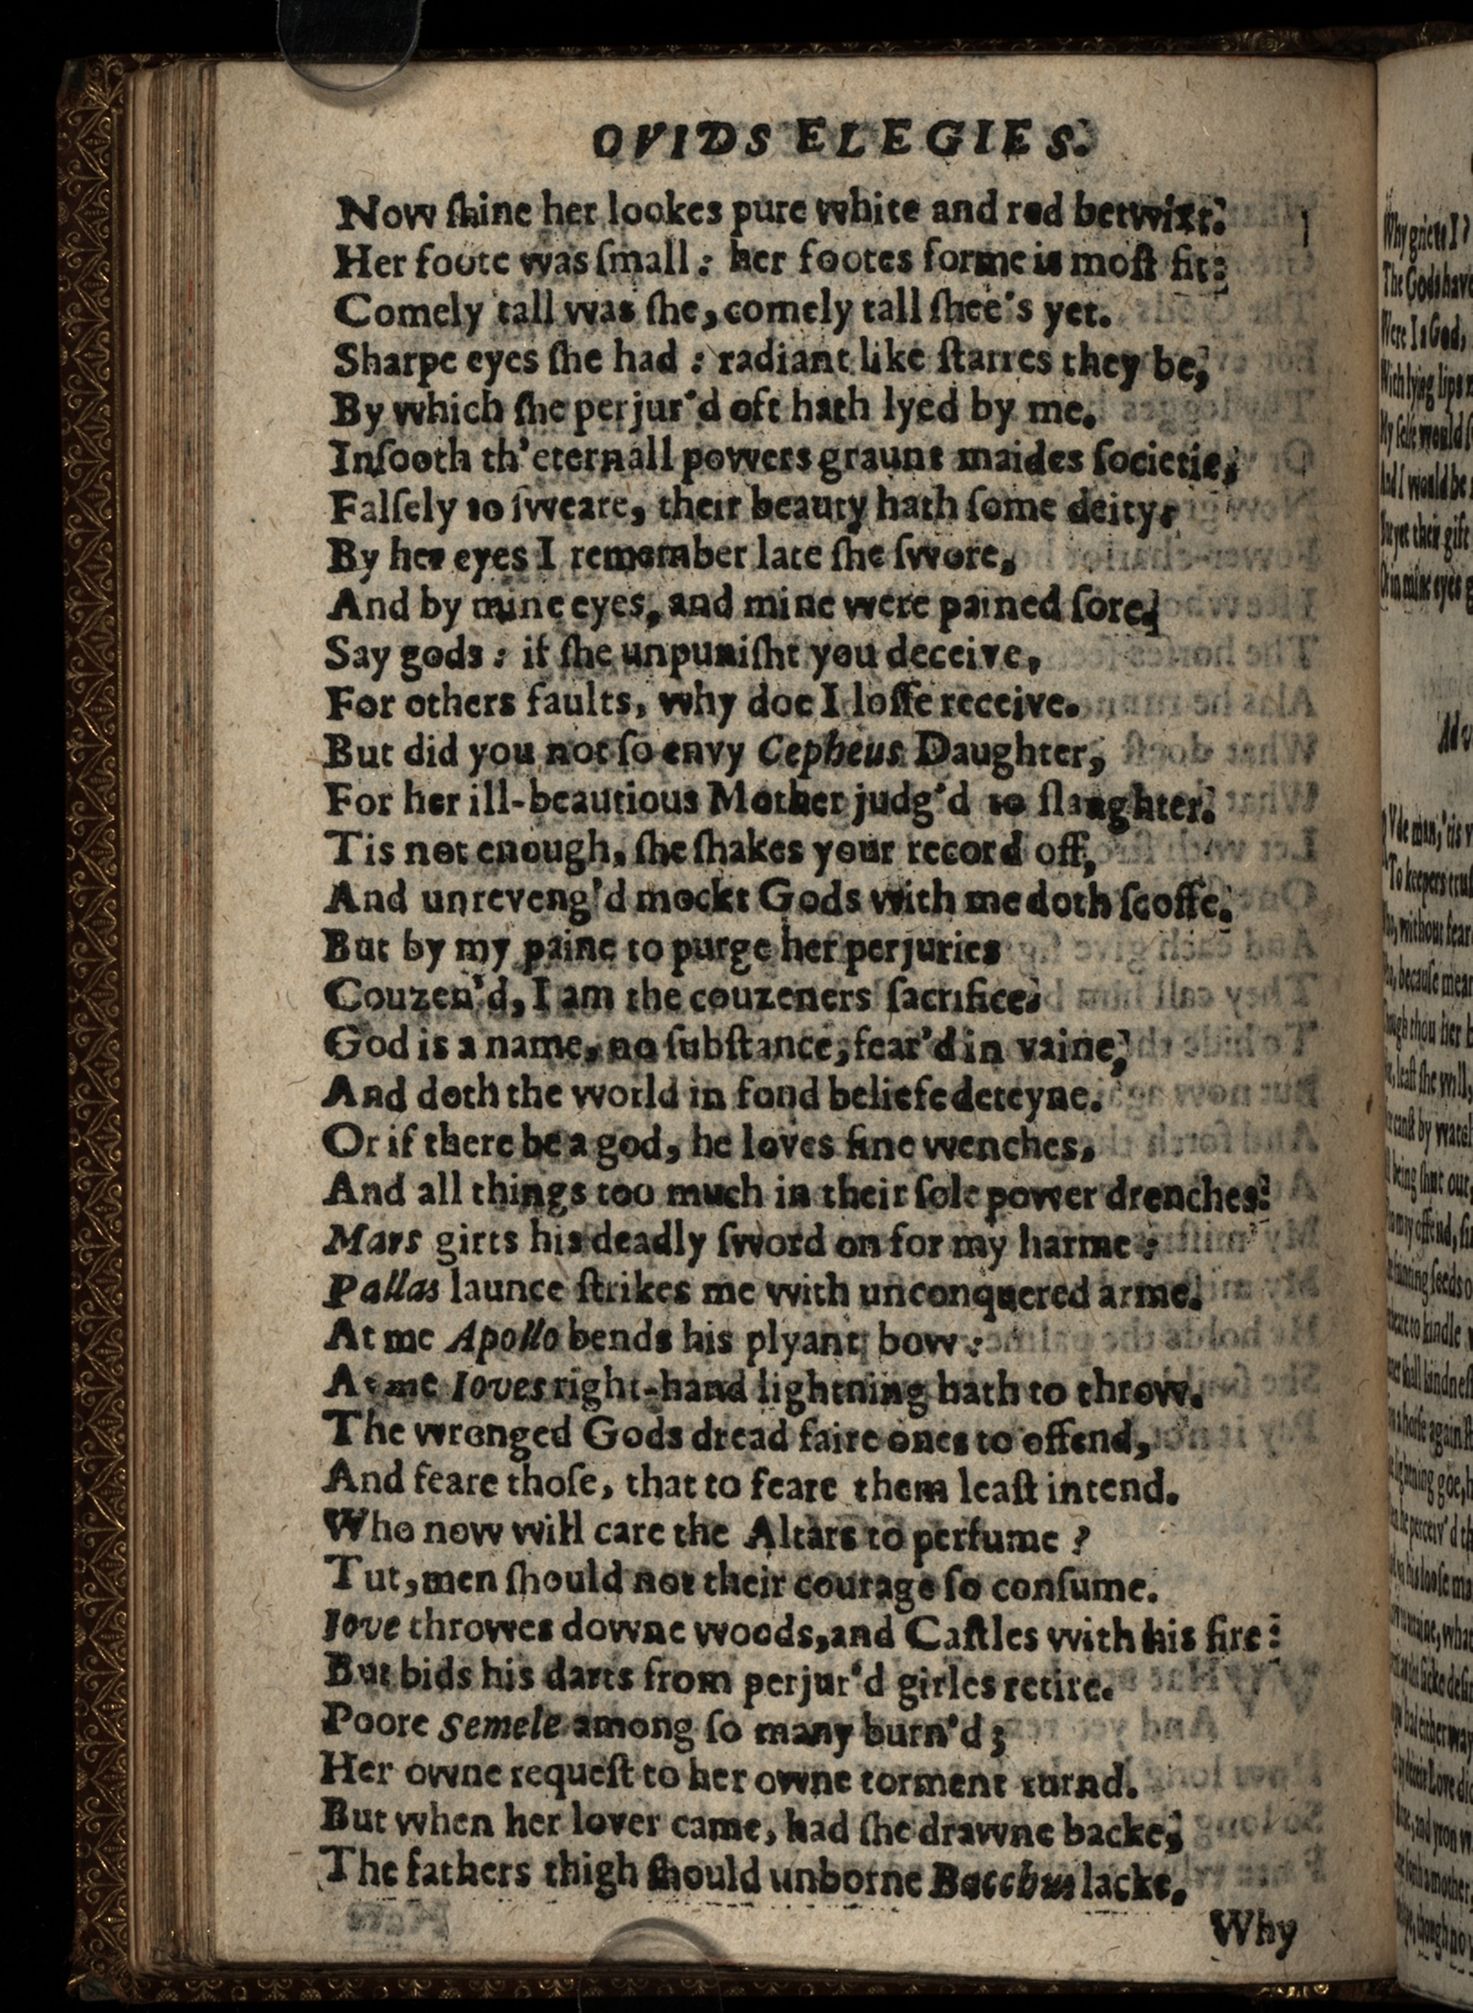 OVIDS ELEGIES.
Now ſhine her lookes pure white and red betwixt.
Her foote was ſmall: her footes forme is moſt fit:
Comely tall was ſhe, comely tall ſhee's yet.
Sharpe eyes ſhe had: radiant like ſtarres they be,
By which ſhe perjur'd oft hath lyed by me.
Inſooth th'eternall powers graunt maides ſocietie,
Falſely to ſweare, their beauty hath ſome deity,
By her eyes I remember late ſhe ſwore,
And by mine eyes, and mine were pained ſore.
Say gods: if ſhe unpuniſht you deceive,
For others faults, why doe I loſſe receive.
But did you not ſo envy Cepheus Daughter,
For her ill-beautious Mother judg'd to ſlaughter.
Tis not enough, ſhe ſhakes your record off,
And unreveng'd mockt Gods with me doth ſcoffe.
But by my paine to purge her perjuries
Couzen'd, I am the couzeners ſacrifice.
God is a name, no ſubſtance, fear'd in vaine,
And doth the world in fond beliefe deteyne.
Or if there be a god, he loves fine wenches,
And all things too much in their ſole power drenches.
Mars girts his deadly ſword on for my harme:
Pallas launce ſtrikes me with unconquered arme.
At me Apollo bends his plyant bow:
At me Ioves right-hand lightning hath to throw.
The wronged Gods dread faire ones to offend,
And feare thoſe, that to feare them leaſt intend.
Who now will care the Altars to perfume?
Tut, men ſhould not their courage ſo conſume.
Iove throwes downe woods, and Caſtles with his fire:
But bids his darts from perjur'd girles retire.
Poore Semele among ſo many burn'd;
Her owne requeſt to her owne torment turnd.
But when her lover came, had ſhe drawne backe,
The fathers thigh ſhould unborne Bacchus lacke.
Why
Why grieve I?
The Gods have
Were I a God,
With lying lips
My ſelfe would
And I would be
But yet their gift
Or in mine eyes